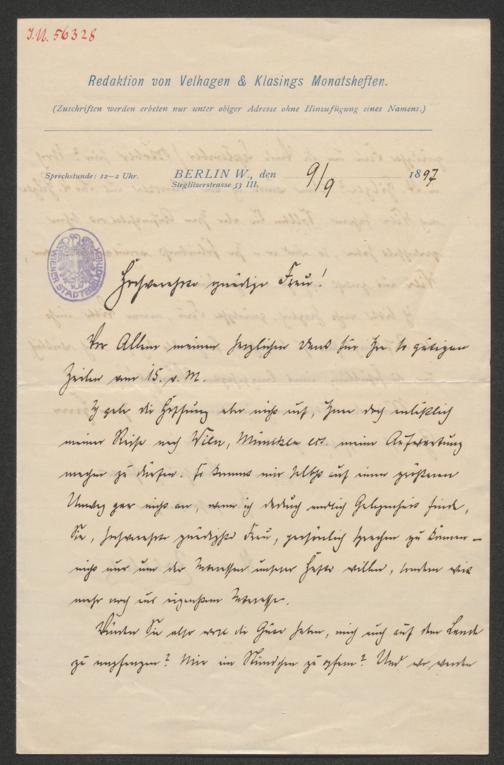 J.N. 56328
Redaktion von Velhagen & Klasings Monatsheften.
(Zuschriften werden erbeten nur unter obiger Adresse ohne Hinzufügung eines Namens.)
Sprechstunde: 12–2 Uhr.
BERLIN W., den 9/9 1897
Steglitzerstrasse 53 III.
WIENER STADTBIBLIOTHEK
Hochverehrte gnädige Frau!
Vor Allem meinen herzlichen Dank für Ihre so gütigen
Zeilen vom 15. v. M.
Ich gebe die Hoffnung aber nicht auf, Ihnen doch anläßlich
meiner Reise nach Wien, München etc. meine Aufwartung
machen zu dürfen. Es kommt mir selbst auf einen größeren
Umweg gar nicht an, wenn ich dadurch endlich Gelegenheit finde,
Sie, hochverehrte gnädigste Frau, persönlich sprechen zu können –
nicht nur um der Interessen unserer Hefte willen, sondern viel
mehr noch aus eigenstem Interesse.
Würden Sie also wohl die Güte haben, mich auch auf dem Lande
zu empfangen? Mir ein Stündchen zu opfern? Und wo, wenn